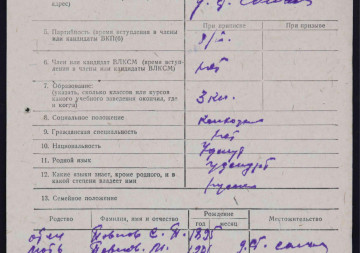 адрес)
При призыве
5. Партийность (время вступления в члены
или кандидаты ВКП(б)
б/п.
6. Член или кандидат ВЛКСМ (время вступ-
ления в члены или кандидаты ВЛКСМ)
нет
7. Образование:
(указать, сколько классов или курсов
какого учебного заведения окончил, где
и когда)
3 кл.
8. Социальное положение
колхозн
9. Гражданская специальность
нет
10. Национальность
Удмурт
11. Родной язык
удмурт
12. Какие языки знает, кроме родного, и в
какой степени владеет ими
русск
13. Семейное положение
Родство
Фамилия, имя и отчество
Рождение
год
месяц
Местожительство
отец
1895
мать
М.